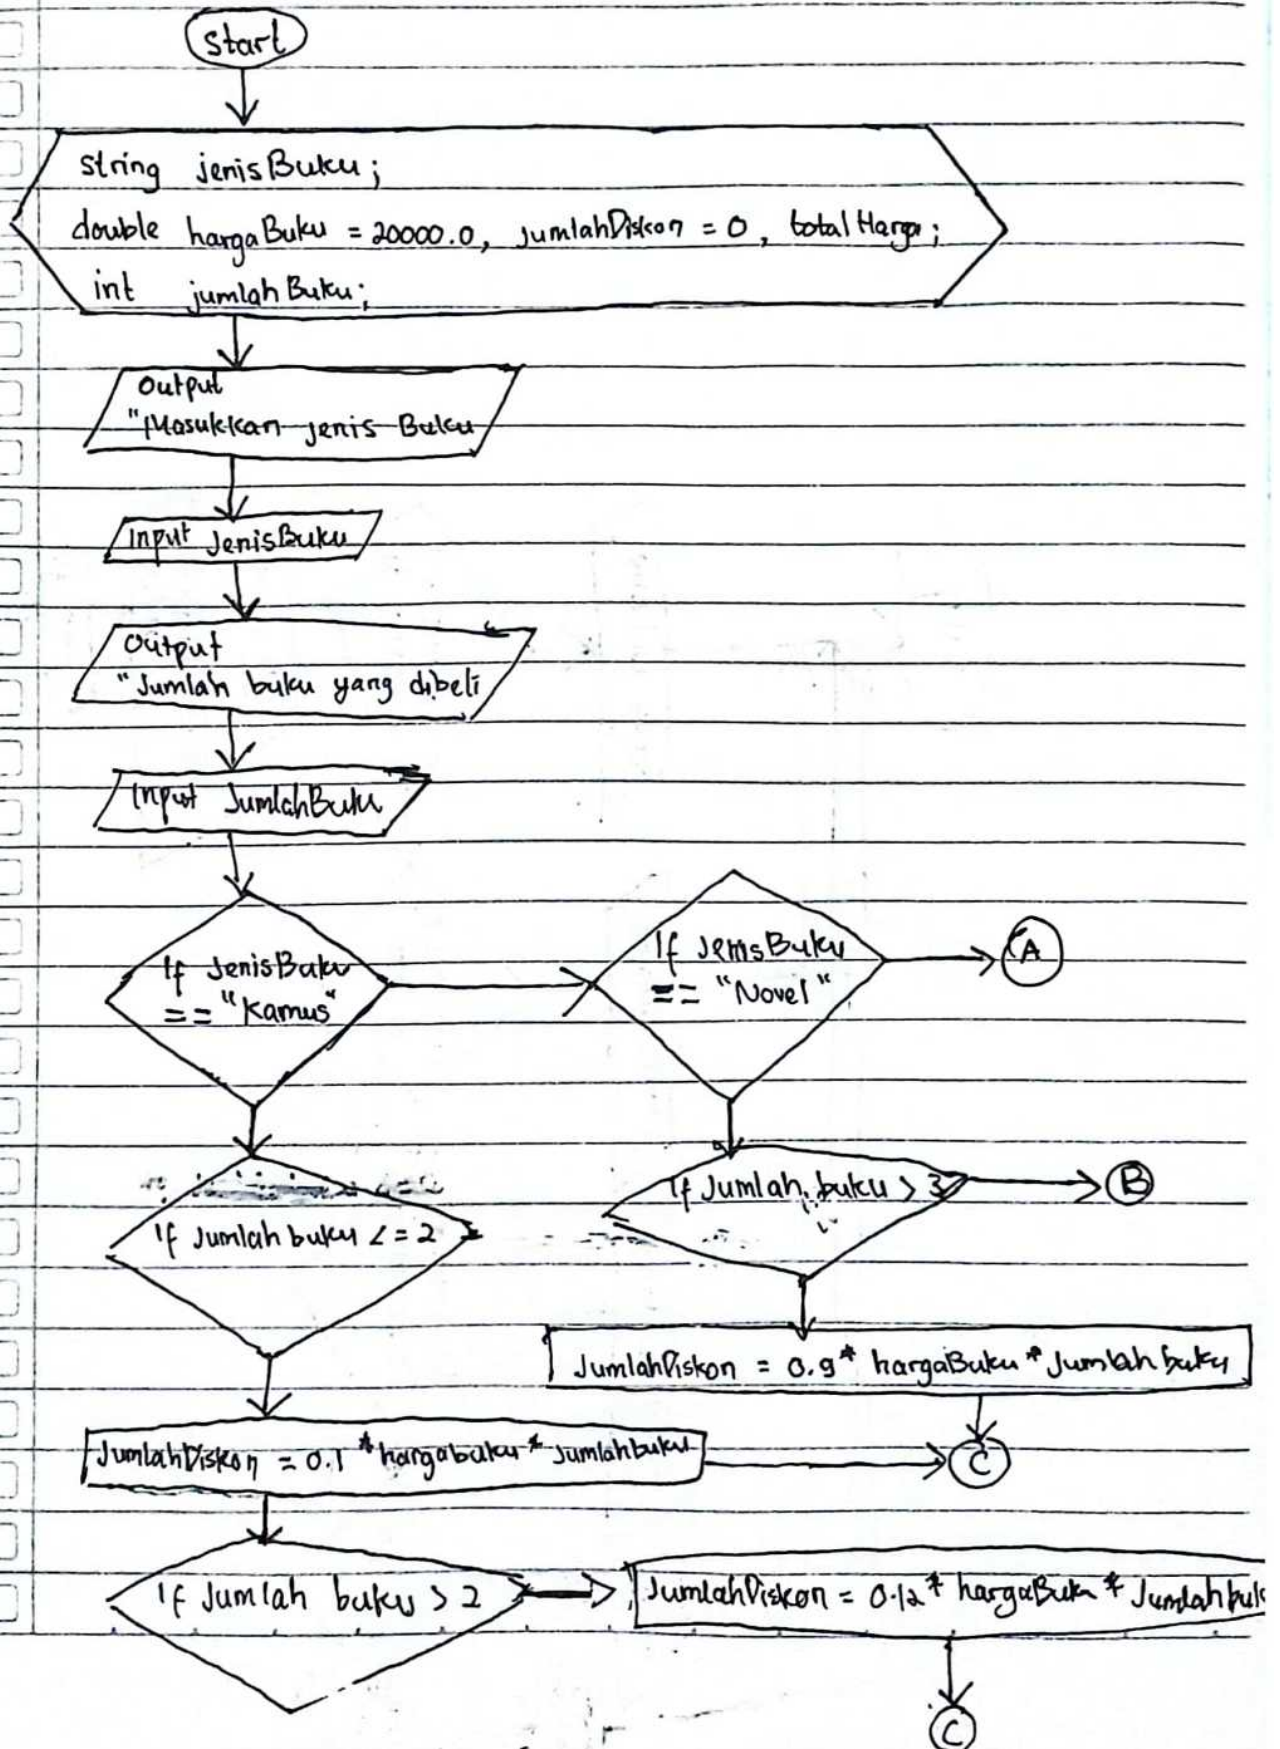 start
string jenisBuku;
double hargaBuku = 20000.0, jumlahDiskon = 0, totalHarga;
int jumlahBuku;
Output
"Masukkan jenis Buku
Input JenisBuku
Output
"Jumlah buku yang dibeli
Input JumlahBuku
If JenisBuku
== "Kamus"
If JenisBuku
== "Novel"
A
If Jumlah buku <= 2
If Jumlah buku > 3
B
JumlahDiskon = 0.9 * hargaBuku * Jumlah buku
JumlahDiskon = 0.1 * hargabuku * Jumlahbuku
C
If Jumlah buku > 2
JumlahDiskon = 0.12 * hargaBuku * Jumlahbuk
C